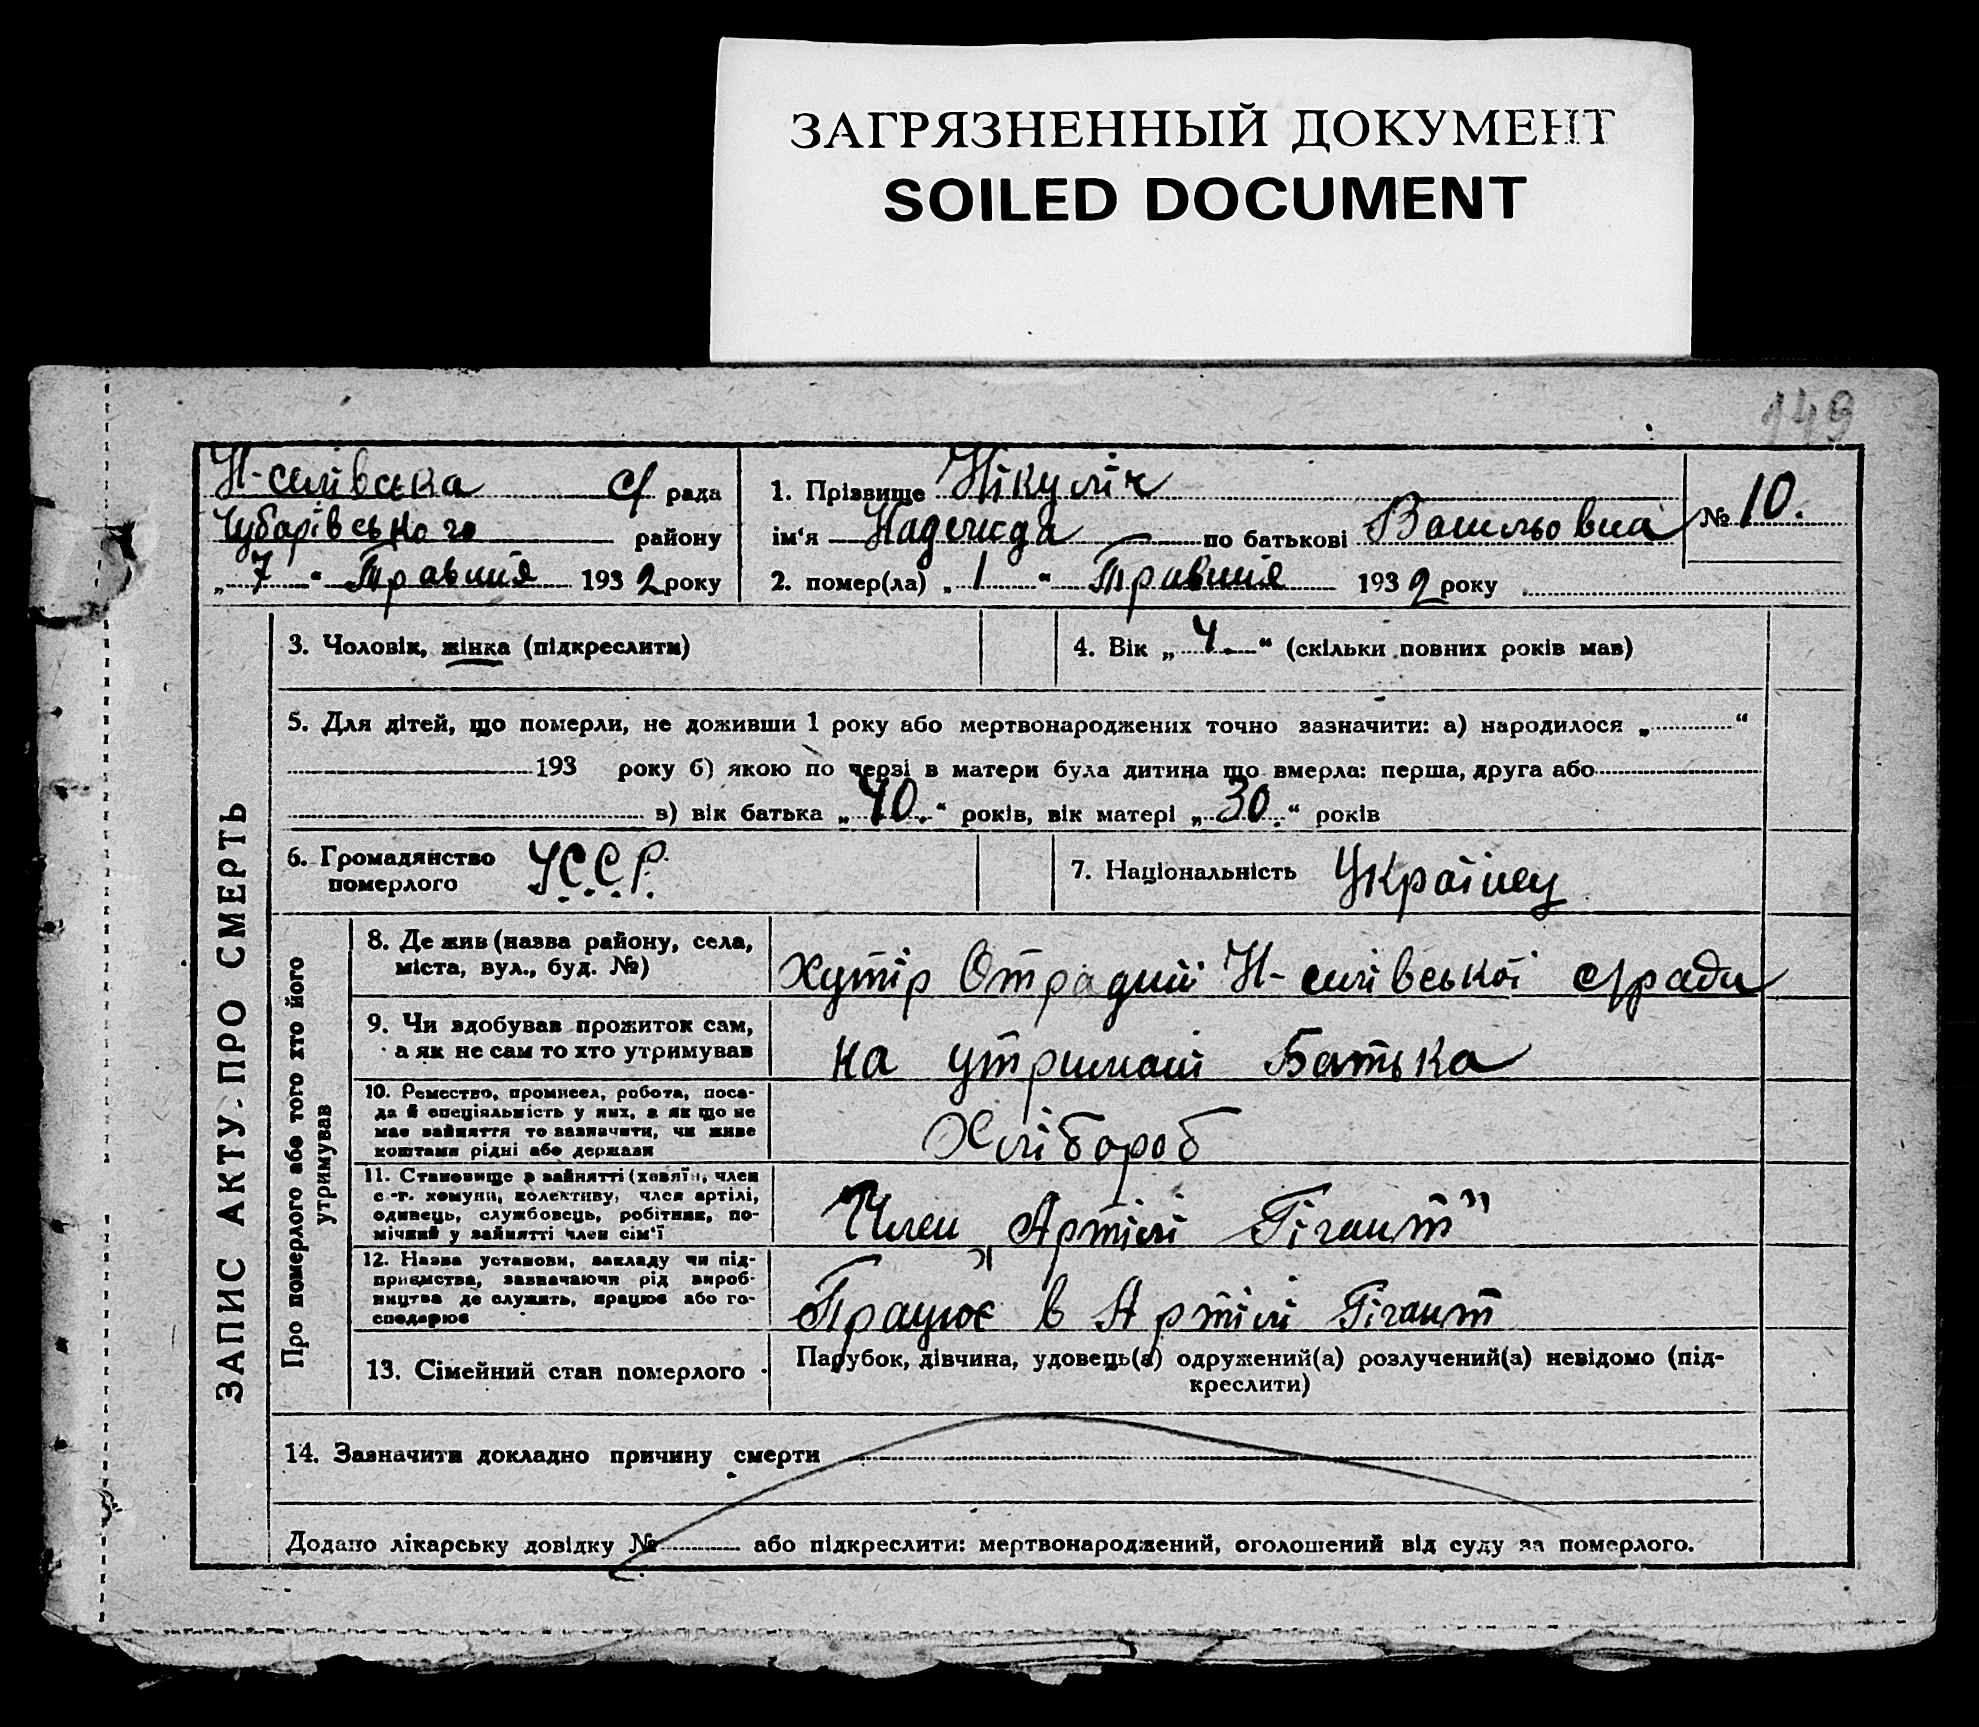 ЗАГРЯЗНЕННЫЙ ДОКУМЕНТ
SOILED DOCUMENT
149
Н-селівська с/ рада
Чубарівського району
„ 7 “ Травня 1932 року
1. Прізвище Нікуліч
ім‘я Надежда по батькові Васильовна
№ 10.
2. помер(ла) „ 1 “ Травня 1932 року
ЗАПИС АКТУ ПРО СМЕРТЬ
3. Чоловік, жінка (підкреслити)
4. Вік „ 4. “ (скільки повних років мав)
5. Для дітей, що померли, не доживши 1 року або мертвонароджених точно зазначити: а) народилося „ “
193 року б) якою по черзі в матери була дитина що вмерла: перша, друга або
в) вік батька „ 40. “ років, вік матері „ 30. “ років
6. Громадянство
померлого У.С.С.Р.
7. Національність Українец
Про померлого або того хто його
утримував
8. Де жив (назва району, села,
міста, вул., буд. №)
хутір Отрадний Н-селівської с/ради
9. Чи вдобував прожиток сам,
а як не сам то хто утримував
на утримані Батька
10. Ремество, промисел, робота, поса-
да й спеціяльність у них, а як що не
має вайняття то зазначити, чи живе
коштами рідні або держави
Хлібороб
11. Становище в вайнятті (хавяїн, член
с.-г. комуни, колективу, член артілі,
одинець, службовець, робітник, по-
мічний у вайнятті член сім‘ї
Член Артілі „Гігант”
12. Назва установи, закладу чи під-
приємства, зазначаючи рід вироб-
ництва де служить, працює або го-
сподарює
Працює в Артілі Гігант
13. Сімейний стан померлого
Парубок, дівчина, удовець(а) одружений(а) розлучений(а) невідомо (під-
креслити)
14. Зазначити докладно причину смерти
Додано лікарську довідку № або підкреслити: мертвонароджений, оголошений від суду за померлого.